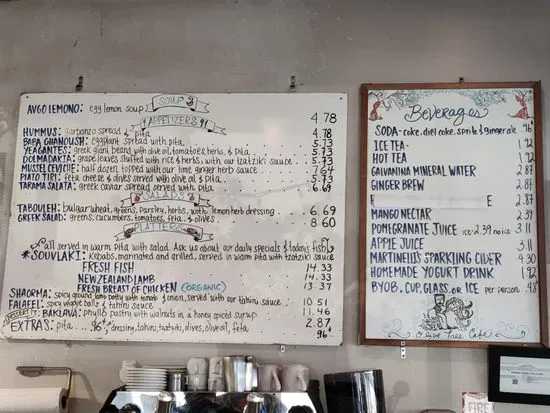 SOUP
AVGO LEMONO: egg lemon soup 4.78
APPETIZERS
HUMMUS: garbanzo spread & pita 4.78
BABA GHANOUSH: eggplant spread with pita 5.73
YEAGANTES: greek giant beans with olive oil, tomatoes, herbs, & pita 5.73
DOLMADAKIA: grape leaves stuffed with rice & herbs, with our tzatziki sauce 5.73
MUSSEL CEVICHE: half dozen topped with our lime ginger herb sauce 7.64
PIATO TIRI: feta cheese & olives served with olive oil & pita 5.73
TARAMA SALATA: greek caviar spread served with pita 6.69
SALADS
TABOULEH: bulgar wheat, greens, parsley, herbs, with lemon herb dressing 6.69
GREEK SALAD: greens, cucumbers, tomatoes, feta & olives 8.60
PLATTERS
all served in warm pita with salad. Ask us about our daily specials & todays fish
*SOUVLAKI: Kebabs, marinated and grilled, served in warm pita with tzatziki sauce
FRESH FISH 14.33
NEW ZEALAND LAMB 14.33
FRESH BREAST OF CHICKEN (ORGANIC) 13.37
SHAORMA: spicy ground lamb patty with tomato & onion, served with our tahini sauce 10.51
FALAFEL: spicy veggie balls & tahini sauce 11.46
DESSERT: BAKLAVA: phyllo pastry with walnuts in a honey spiced syrup 2.87
EXTRAS: pita .96¢ dressing, tahini, tzatziki, olives, olive oil, feta .96
Beverages
SODA - coke, diet coke, sprite & gingerale .96¢
ICE TEA 1.92
HOT TEA 1.92
GALVANINA MINERAL WATER 2.87
GINGER BREW 2.87
E 2.87
MANGO NECTAR 2.39
POMEGRANATE JUICE ice 2.39 no ice 3.11
APPLE JUICE 3.11
MARTINELLI'S SPARKLING CIDER 4.30
HOMEMADE YOGURT DRINK 1.92
BYOB, CUP, GLASS, OR ICE per person .48¢
Olive Tree Cafe
FIRE